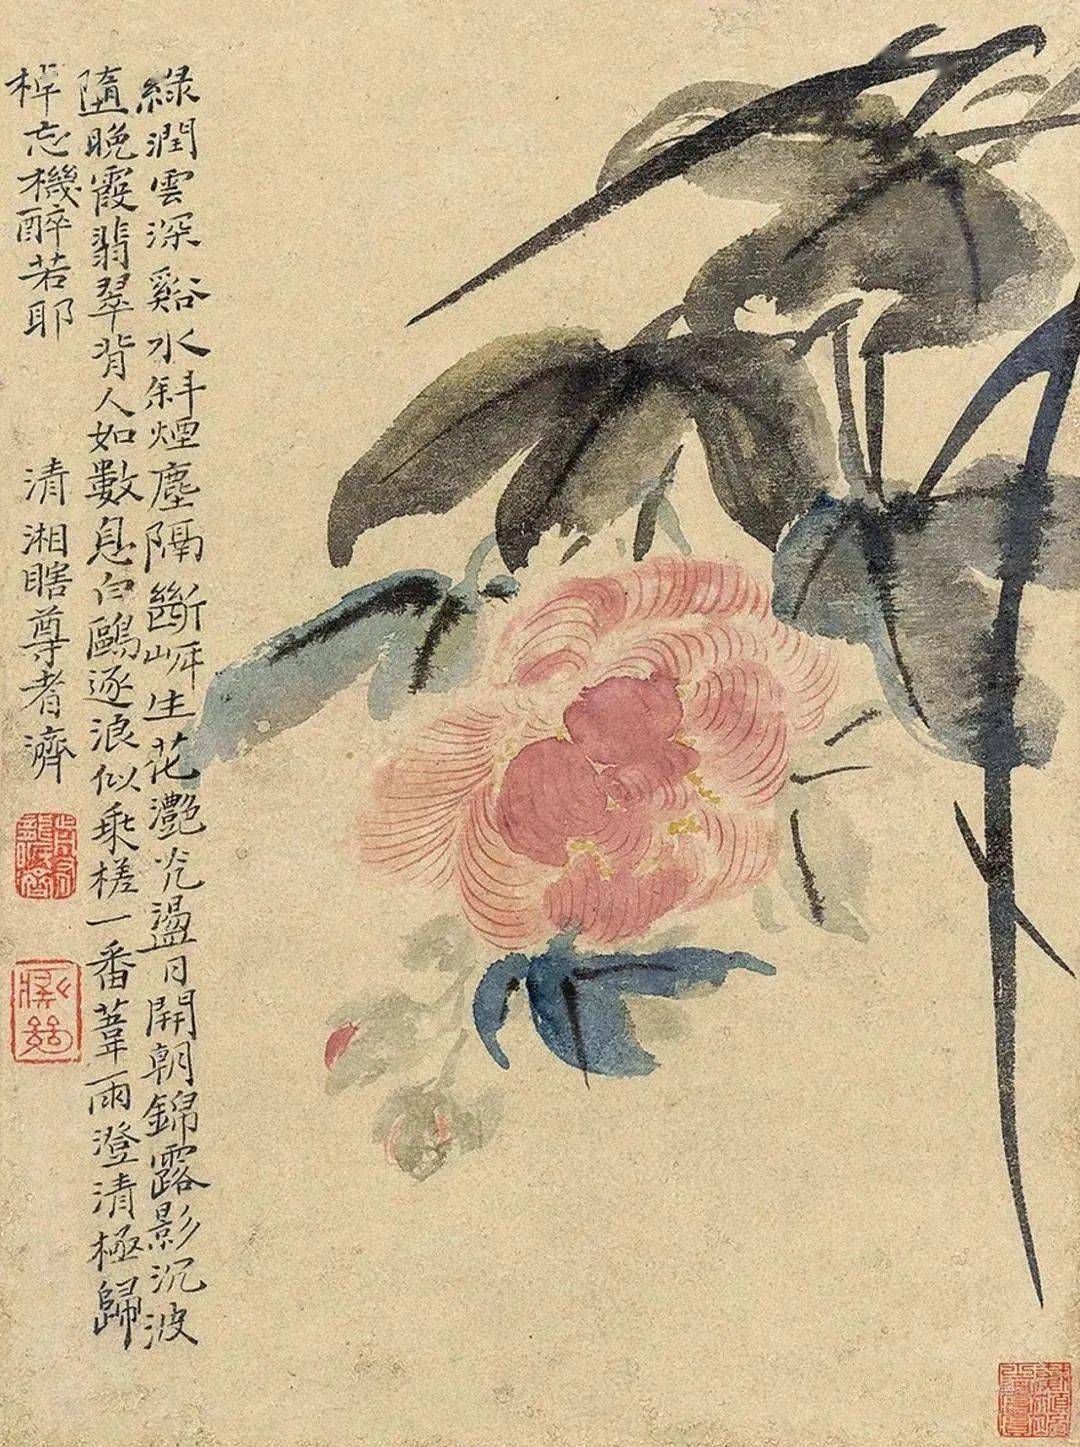 綠潤雲深谿水斜煙塵隔斷岈生花灧光盪日開朝錦露影沉波
墮晚霞翡翠背人如數息白鷗逐浪似乘槎一番葦雨澄清極歸
棹忘機醉若耶
清湘瞎尊者濟